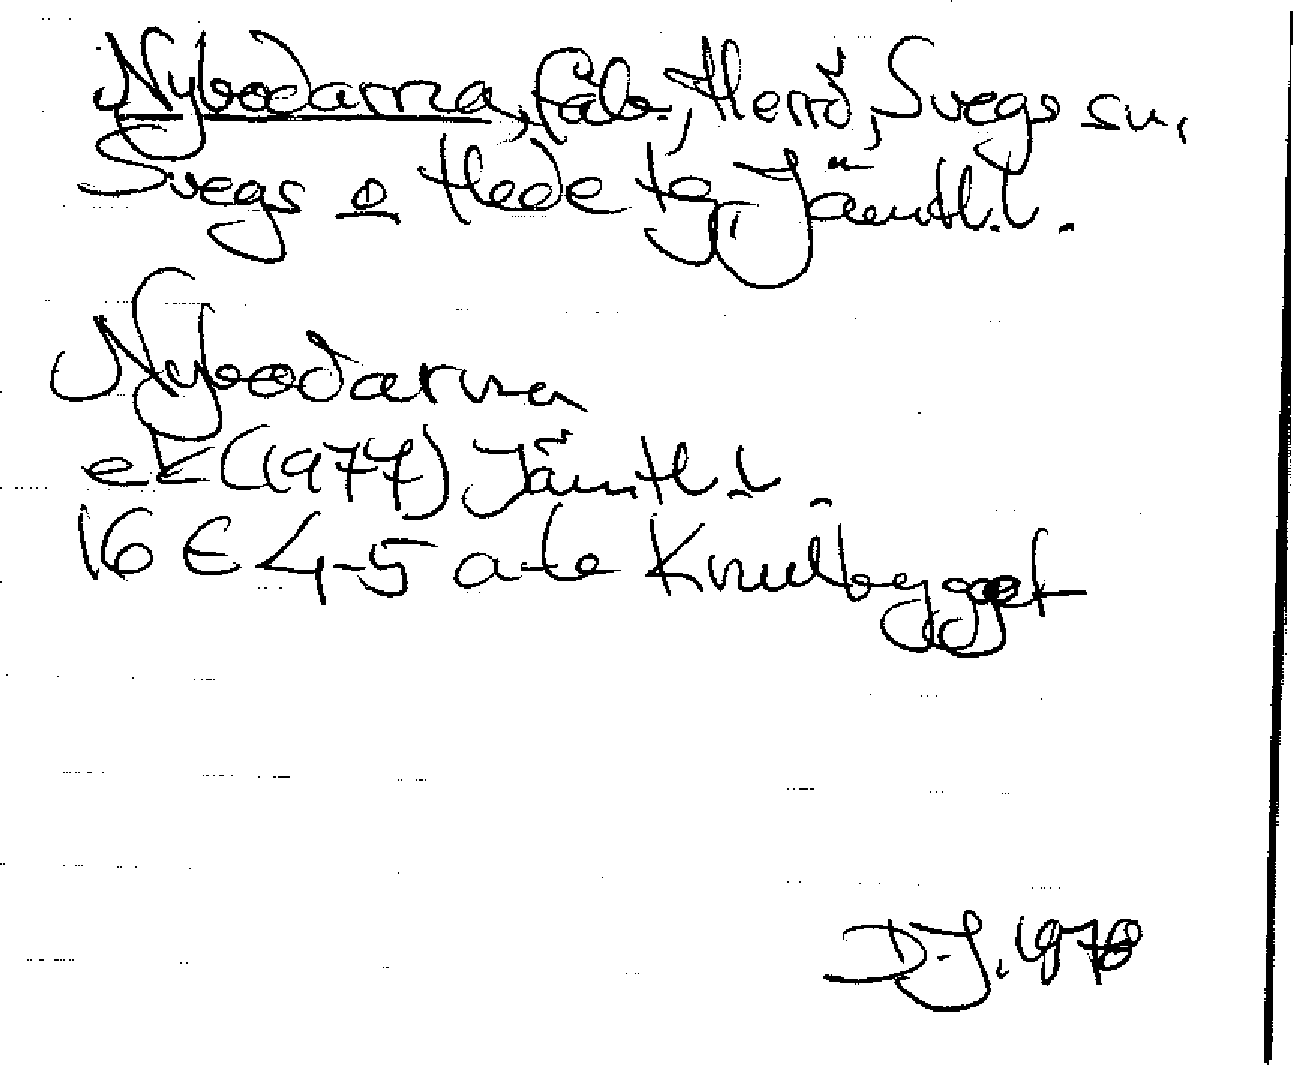 Nybodarna, fäb., Herrö, Svegs sn,
Svegs o Hede tg, Jämtl.l.
Nybodarna
ek (1977) Jämtl.l.
16 E 4-5 a-b Knulbygget
D-J. 1978